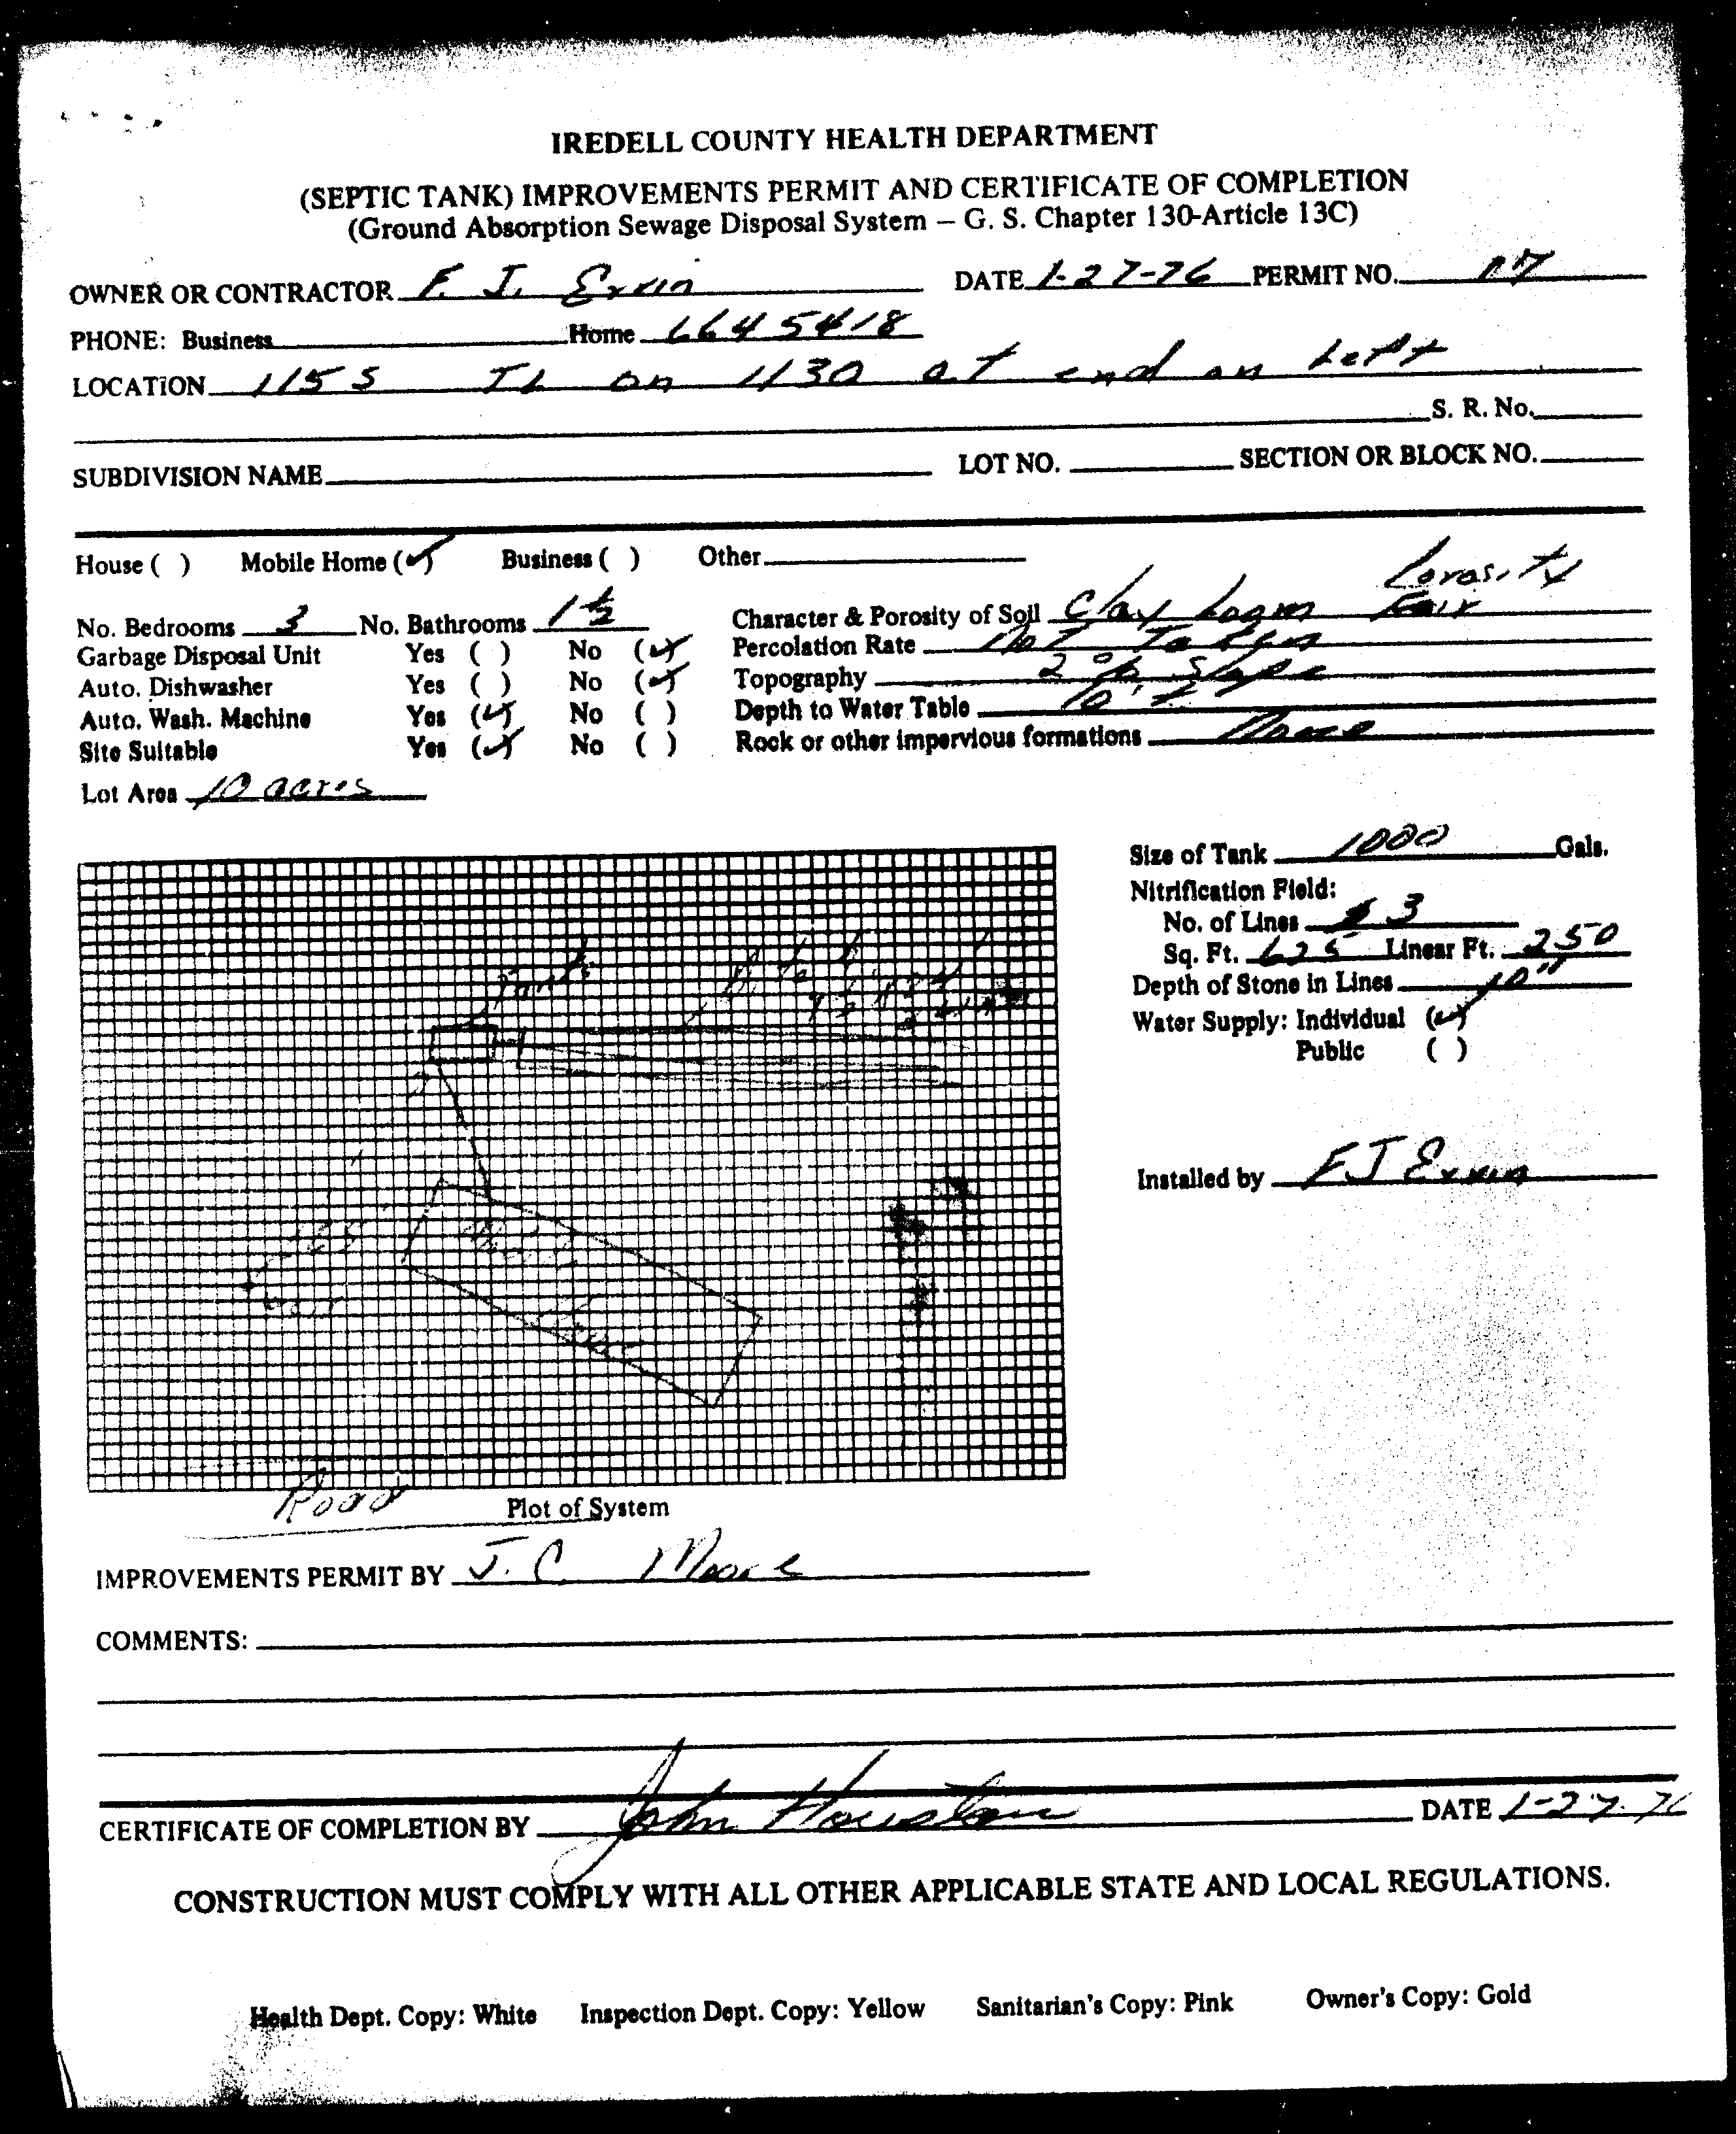 IREDELL COUNTY HEALTH DEPARTMENT
(SEPTIC TANK) IMPROVEMENTS PERMIT AND CERTIFICATE OF COMPLETION
(Ground Absorption Sewage Disposal System – G. S. Chapter 130-Article 13C)
OWNER OR CONTRACTOR F. J. Ervin DATE 1-27-76 PERMIT NO.
PHONE: Business Home 664 5418
LOCATION 115 S TL on 1130 at end on Left
S. R. No.
SUBDIVISION NAME LOT NO. SECTION OR BLOCK NO.
House ( ) Mobile Home (✓) Business ( ) Other
Porosity
No. Bedrooms 3 No. Bathrooms 1 1/2 Character & Porosity of Soil Clay Loam Fair
Garbage Disposal Unit Yes ( ) No (✓) Percolation Rate Not Taken
Auto. Dishwasher Yes ( ) No (✓) Topography 2% Slope
Auto. Wash. Machine Yes (✓) No ( ) Depth to Water Table
Site Suitable Yes (✓) No ( ) Rock or other impervious formations None
Lot Area 10 acres
Size of Tank 1000 Gals.
Nitrification Field:
No. of Lines 3
Sq. Ft. 625 Linear Ft. 250
Depth of Stone in Lines 10"
Water Supply: Individual (✓)
Public ( )
Tank
Installed by F J Ervin
Road
Plot of System
IMPROVEMENTS PERMIT BY J. C Moore
COMMENTS:
CERTIFICATE OF COMPLETION BY John Houston DATE 1-27-76
CONSTRUCTION MUST COMPLY WITH ALL OTHER APPLICABLE STATE AND LOCAL REGULATIONS.
Health Dept. Copy: White Inspection Dept. Copy: Yellow Sanitarian's Copy: Pink Owner's Copy: Gold